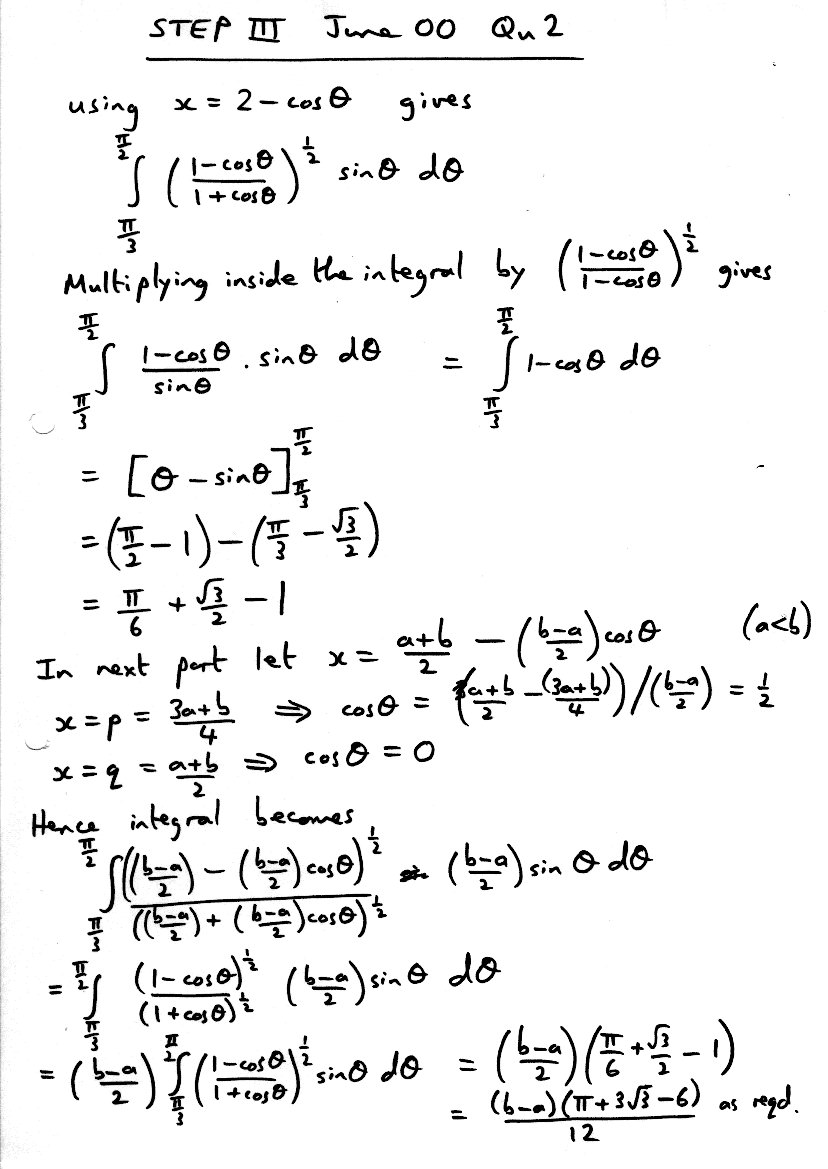 STEP III June 00 Qu 2
using x = 2 - cosθ gives
∫_{π/3}^{π/2} ((1-cosθ)/(1+cosθ))^{1/2} sinθ dθ
Multiplying inside the integral by ((1-cosθ)/(1-cosθ))^{1/2} gives
∫_{π/3}^{π/2} (1-cosθ)/sinθ . sinθ dθ = ∫_{π/3}^{π/2} 1-cosθ dθ
= [θ - sinθ]_{π/3}^{π/2}
= (π/2 - 1) - (π/3 - √3/2)
= π/6 + √3/2 - 1
In next part let x = (a+b)/2 - ((b-a)/2) cosθ (a<b)
x = p = (3a+b)/4 ⇒ cosθ = ((a+b)/2 - (3a+b)/4)/((b-a)/2) = 1/2
x = q = (a+b)/2 ⇒ cosθ = 0
Hence integral becomes
∫_{π/3}^{π/2} (((b-a)/2) - ((b-a)/2)cosθ)^{1/2} / (((b-a)/2) + ((b-a)/2)cosθ)^{1/2} ((b-a)/2) sinθ dθ
= ∫_{π/3}^{π/2} (1-cosθ)^{1/2}/(1+cosθ)^{1/2} ((b-a)/2) sinθ dθ
= ((b-a)/2) ∫_{π/3}^{π/2} ((1-cosθ)/(1+cosθ))^{1/2} sinθ dθ = ((b-a)/2)(π/6 + √3/2 - 1)
= (b-a)(π+3√3-6)/12 as reqd.